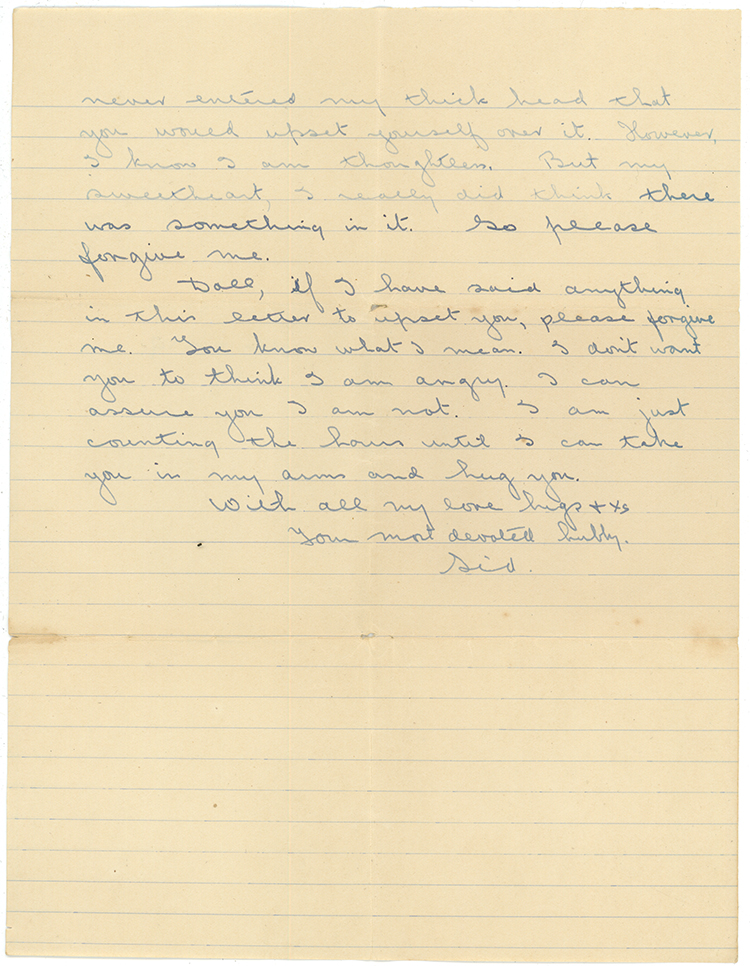 never entered my thick head that
you would upset yourself over it. However,
I know I am thoughtless. But my
sweetheart, I really did think there
was something in it. So please
forgive me.
Doll, if I have said anything
in this letter to upset you, please forgive
me. You know what I mean. I don't want
you to think I am angry. I can
assure you I am not. I am just
counting the hours until I can take
you in my arms and hug you.
With all my love hugs + xs
Your most devoted hubby.
Sid.